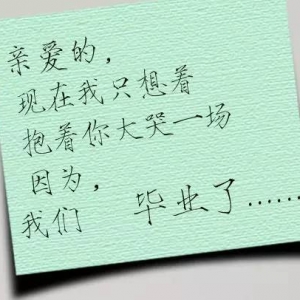 亲爱的，
现在我只想着
抱着你大哭一场
因为，
我们 毕业了……